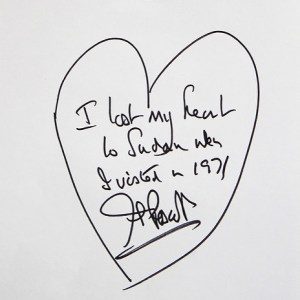 I lost my heart
to Sudan when
I visited in 1971